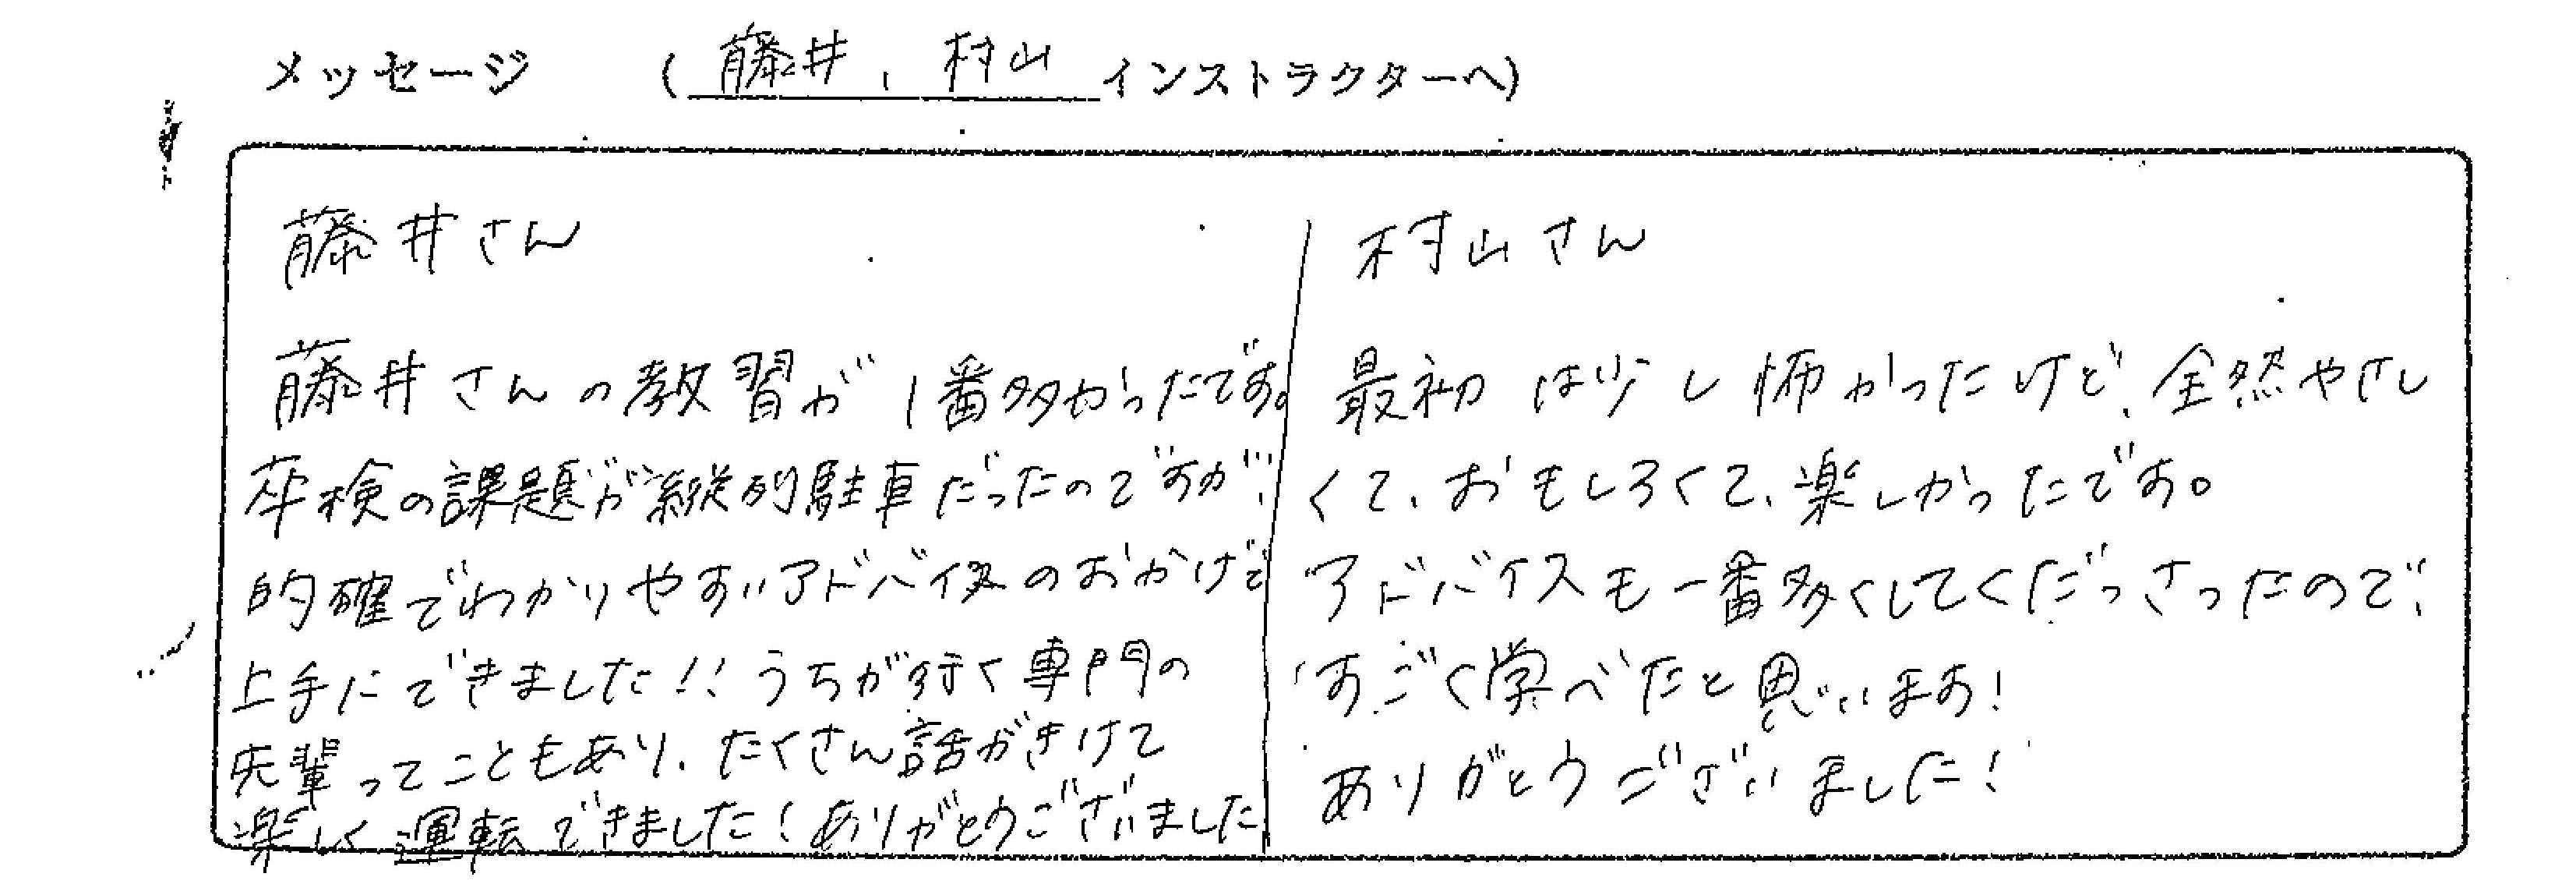 メッセージ (藤井、村山インストラクターへ)
藤井さん
藤井さんの教習が1番多かったです。
卒検の課題が縦列駐車だったのですが、
的確でわかりやすいアドバイスのおかげで
上手にできました!! うちが行く専門の
先輩ってこともあり、たくさん話がきけて
楽しく運転できました!ありがとうございました
村山さん
最初は少し怖かったけど、全然やさし
くて、おもしろくて、楽しかったです。
アドバイスも一番多くしてくだっさったので、
すごく学べたと思います!
ありがとうございました!